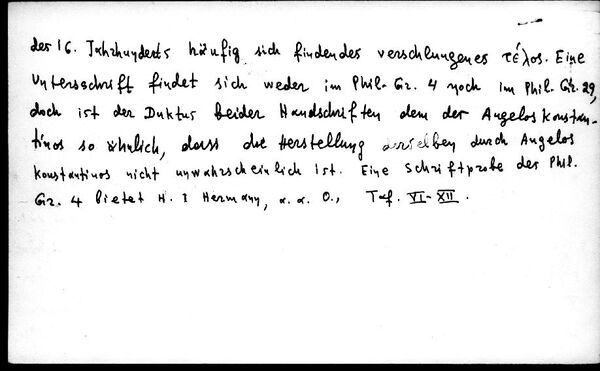 des 16. Jahrhunderts häufig sich findendes verschlungenes τέλος. Eine
Unterschrift findet sich weder im Phil. Gr. 4 noch im Phil. Gr. 29,
doch ist der Duktus beider Handschriften dem der Angelos Konstan-
tinos so ähnlich, dass die Herstellung derselben durch Angelos
Konstantinos nicht unwahrscheinlich ist. Eine Schriftprobe des Phil.
Gr. 4 bietet H. J Hermann, a. a. O., Taf. VI-XII.